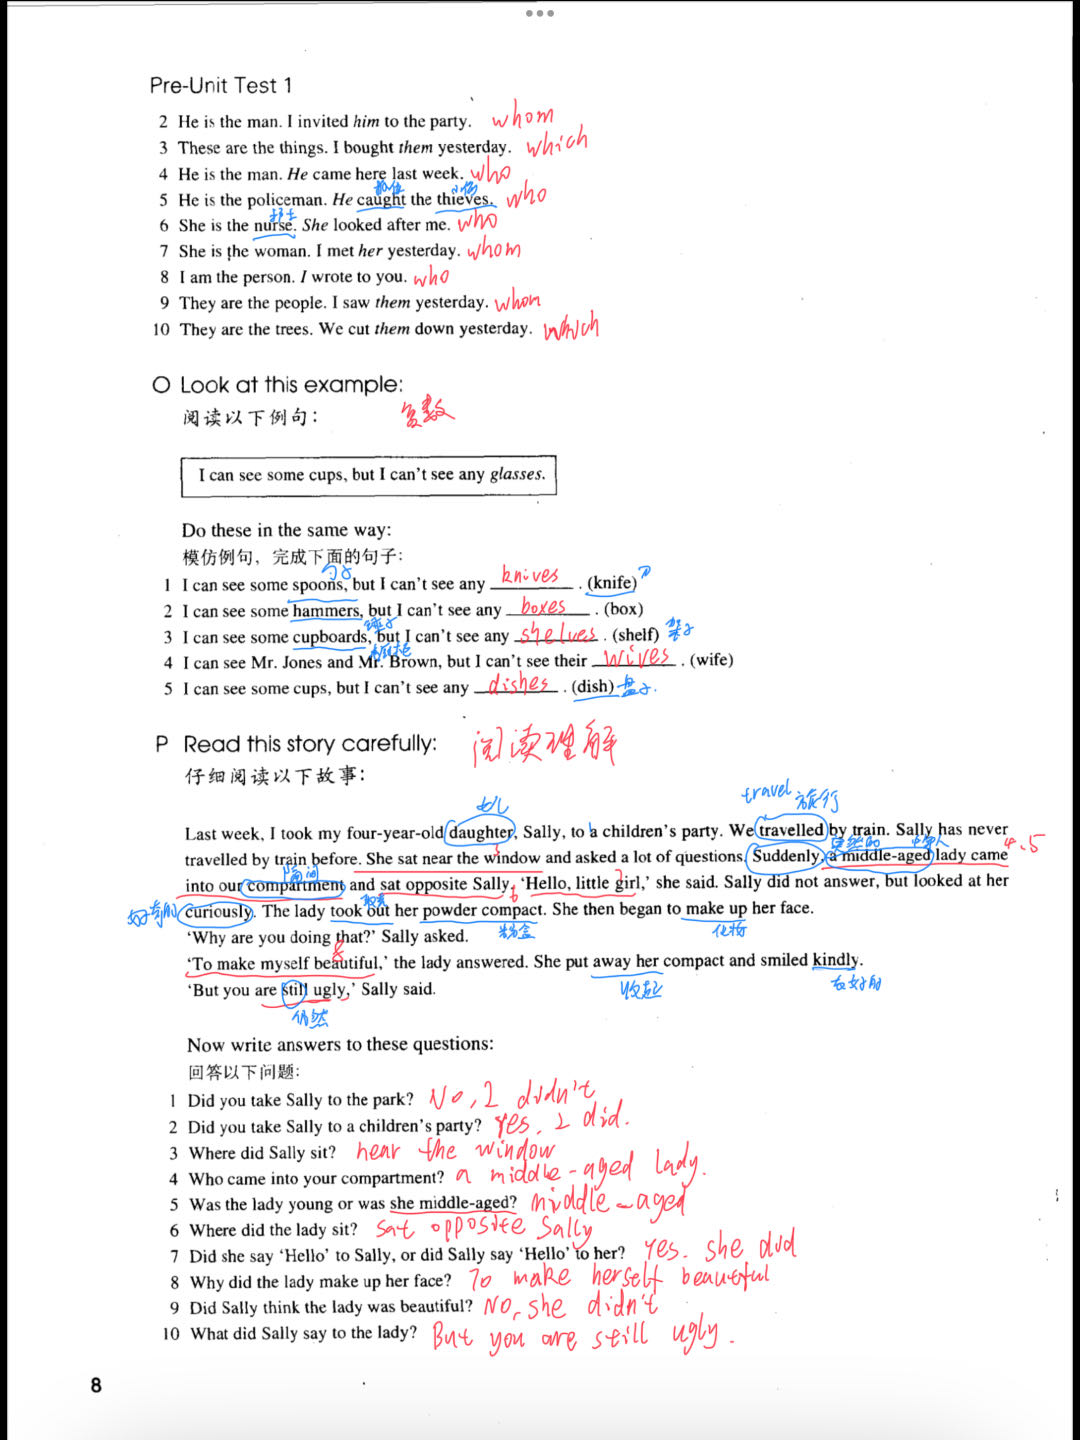 Pre-Unit Test 1
2 He is the man. I invited him to the party. whom
3 These are the things. I bought them yesterday. which
4 He is the man. He came here last week. who
抓住 小偷
5 He is the policeman. He caught the thieves. who
护士
6 She is the nurse. She looked after me. who
7 She is the woman. I met her yesterday. whom
8 I am the person. I wrote to you. who
9 They are the people. I saw them yesterday. whom
10 They are the trees. We cut them down yesterday. which
O Look at this example:
阅读以下例句： 复数
I can see some cups, but I can't see any glasses.
Do these in the same way:
模仿例句，完成下面的句子：
勺子
1 I can see some spoons, but I can't see any knives. (knife) 刀
2 I can see some hammers, but I can't see any boxes. (box)
锤子
3 I can see some cupboards, but I can't see any shelves. (shelf) 架子
4 I can see Mr. Jones and Mr. Brown, but I can't see their wives. (wife)
5 I can see some cups, but I can't see any dishes. (dish) 盘子.
P Read this story carefully: 阅读理解
仔细阅读以下故事：
女儿 travel 旅行
Last week, I took my four-year-old daughter, Sally, to a children's party. We travelled by train. Sally has never
突然的 中年人
travelled by train before. She sat near the window and asked a lot of questions. Suddenly, a middle-aged lady came 4.5
隔间
into our compartment and sat opposite Sally. 'Hello, little girl,' she said. Sally did not answer, but looked at her
好奇的 curiously. The lady took out her powder compact. She then began to make up her face.
粉盒 化妆
'Why are you doing that?' Sally asked.
8
'To make myself beautiful,' the lady answered. She put away her compact and smiled kindly.
收起 友好的
'But you are still ugly,' Sally said.
仍然
Now write answers to these questions:
回答以下问题：
1 Did you take Sally to the park? No, I didn't
2 Did you take Sally to a children's party? Yes, I did.
3 Where did Sally sit? near the window
4 Who came into your compartment? a middle-aged lady.
5 Was the lady young or was she middle-aged? middle-aged
6 Where did the lady sit? sat opposite Sally
7 Did she say 'Hello' to Sally, or did Sally say 'Hello' to her? Yes. she did
8 Why did the lady make up her face? To make herself beautiful
9 Did Sally think the lady was beautiful? No, she didn't
10 What did Sally say to the lady? But you are still ugly.
8